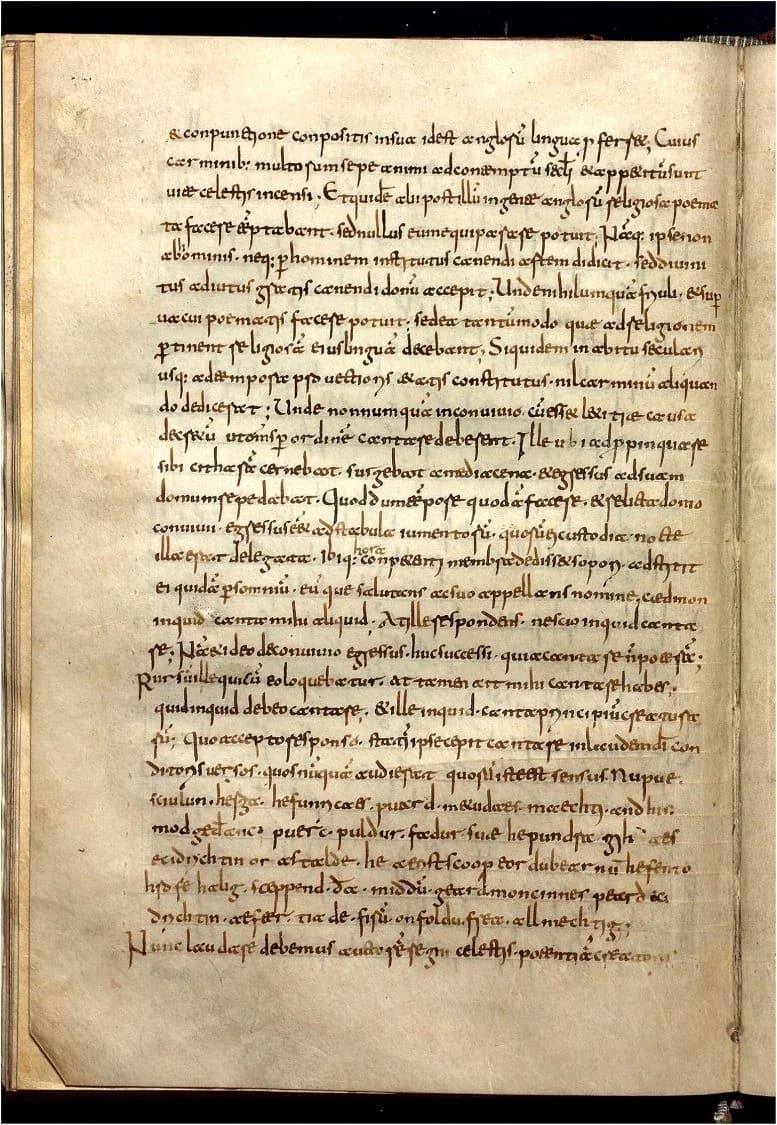 & conpunctione conpositis insua idest anglosū lingua ꝓferret; Cuius
carminib; multorum sepe animi adcontemptū secli & apperitū sunt
uitae celestis incensi; Etquidē alii post illū ingente anglorū religiosa poema
ta facere tēptabant. sednullus eum equiparare potuit; Nāq; ipse non
ab hominis. neq; ꝑ hominem institutus canendi artem didicit. seddiuini
tus adiutus gratis canendi donū accepit; Unde nihil umquā friuoli. & suꝑ
uacui poematis facere potuit. sedea tantūmodo quae adreligionem
ꝑtinent religiosā eius linguā decebant; Siquidem in abitu seculari
usq; ad tempora prouectioris etatis constitutus. nil carminū aliquan
do dedicerat; Unde nonnumquā inconuiuio. cū ess& letitiae causa
decretū ut omīs ꝑ ordinē cantare deberent. Ille ubi adꝓpinquare
sibi cithasā cernebat. surgebat a media cena. & egressus adsuam
domum repedabat. Quod dum tēpore quodā faceret. & relicta domo
conuiuii. egressus ēet ad stabula iumentorū. quorū ei custodia nocte
illa erat delegata. Ibiq; hora conpetenti membra dediss& sopori. adstitit
ei quidā ꝑ somniū. eū que salutans ac suo appellans nomine. caedmon
inquid canta mihi aliquid. At ille respondens. nescio inquid canta
re; Nā & ideo deconuiuio egressus. huc successi. quia cantare n̄ poterā;
Rursū ille qui cū eo loquebatur. at tamen ait mihi cantare habes;
quid inquid debeo cantare. & ille inquid. canta principiū creatura
rū; Quo accepto responso. statī ipse cepit cantare in laudem dei con
ditoris uersos. quos nūquā audierat quorū iste est sensus. Nu pue.
sciulun. herga. hefunricaes. puard. metudaes. maechti. and his.
modgedanc. puerc. puldur. fadur. sue he pundra gihuaes
eci drichtin or astalde. he aerist scoop eordu bearnū hefen to
hrofe halig. sceppend. ða. middū. geard moncinnes peard eci
drichtin. aefter. tiade. firū. on foldu. frea. allmechtig;
Nunc laudare debemus auctorē regni celestis. potentiā creatoris